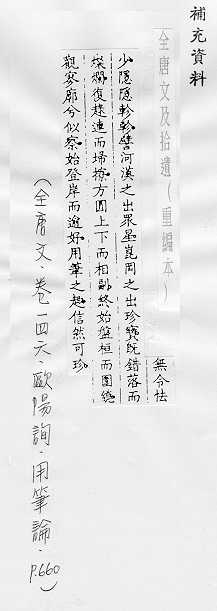 補充資料
全唐文及拾遺(重編本)
無令怯
少隱隱軫軫譬河漢之出眾星崑岡之出珍寶既錯落而
燦爛復趢連而埽撩方圓上下而相副終始盤桓而圍繞
觀寥廓兮似察始登岸而逾好用筆之趣信然可珍
(全唐文·卷一四六·歐陽詢·用筆論·P.660)